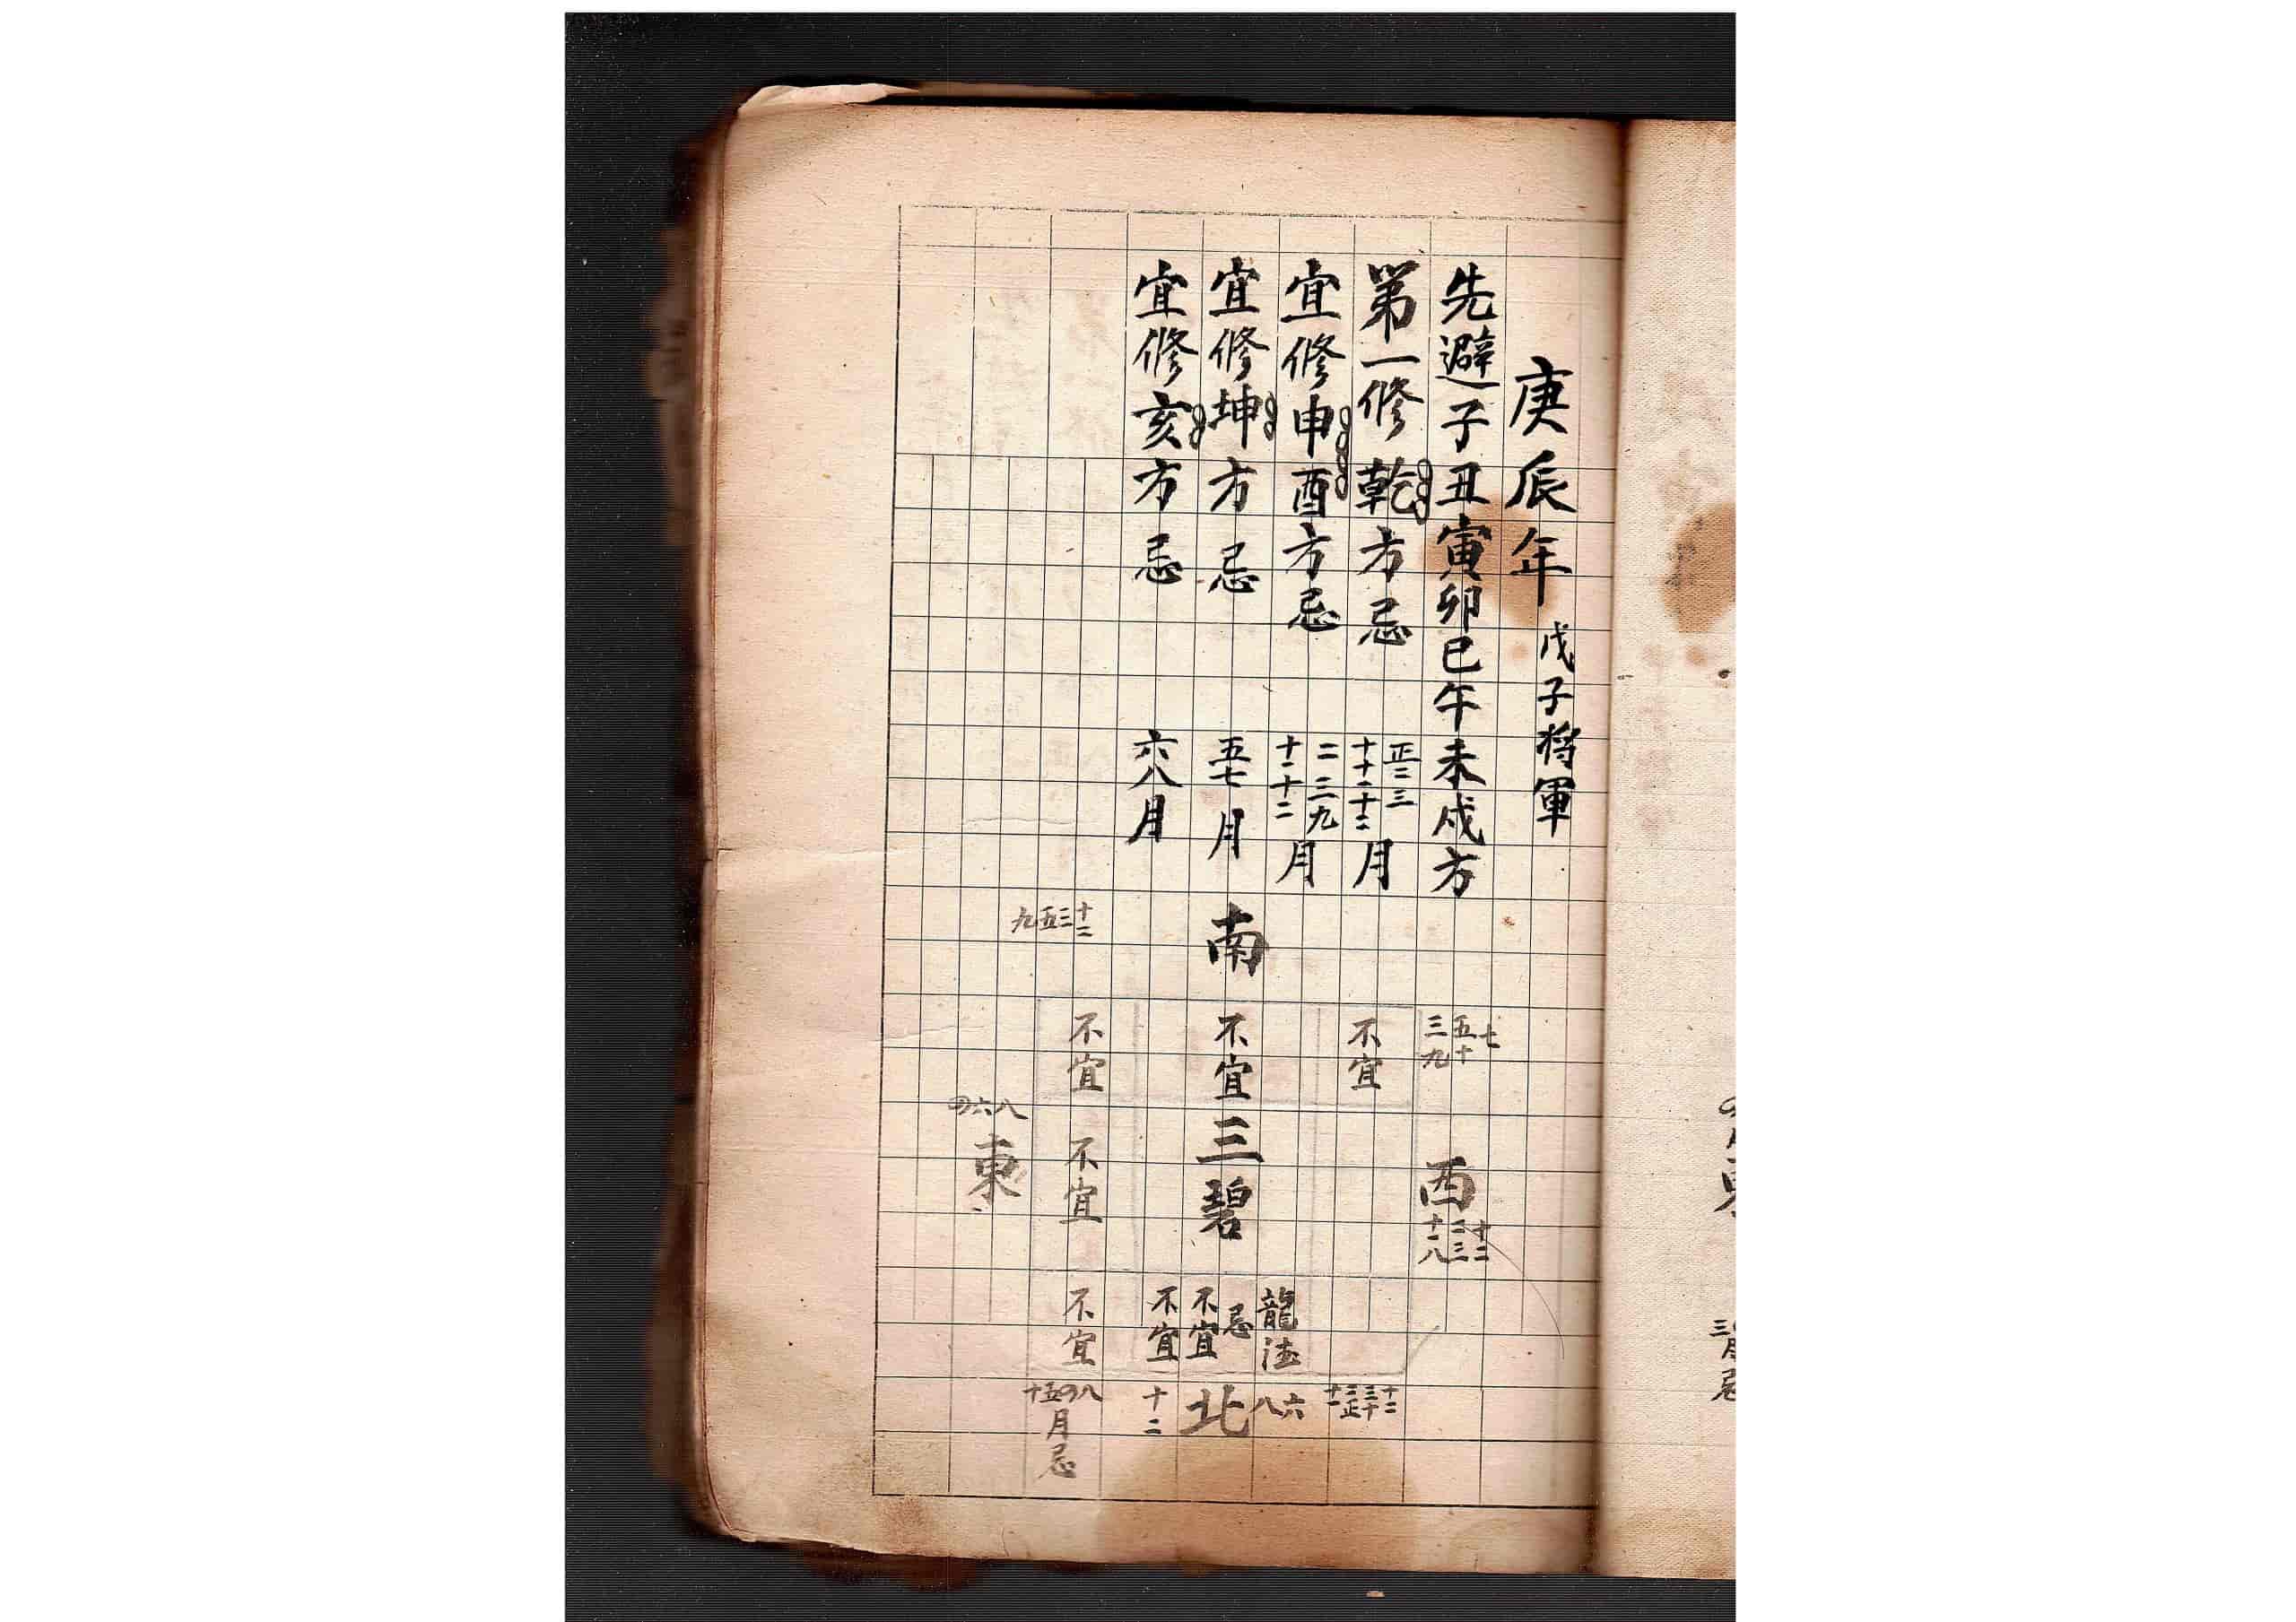 庚辰年 戊子将軍
先避子丑寅卯巳午未戌方
第一修乾方忌 正二三十十一十二月
宜修申酉方忌 二三九十一十二月
宜修坤方忌 五七月
宜修亥方忌 六八月
南
十二三五九
不宜
不宜
不宜
七五十三九
四六八
東
不宜
三碧
西
十二二三十一八
龍德
忌
不宜
不宜
不宜
六八
北
十二
八四五十
月忌